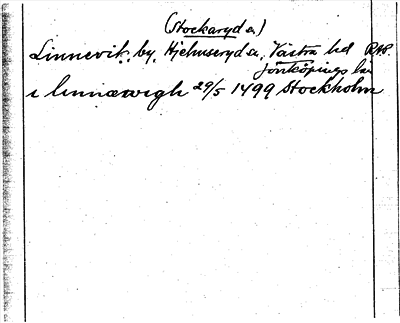 (Stockaryd a)
Linnevik, by, Hjelmseryd a, Västra hd RAP.
Jönköpings län
i linnæwigh 29/5 1499 Stockholm